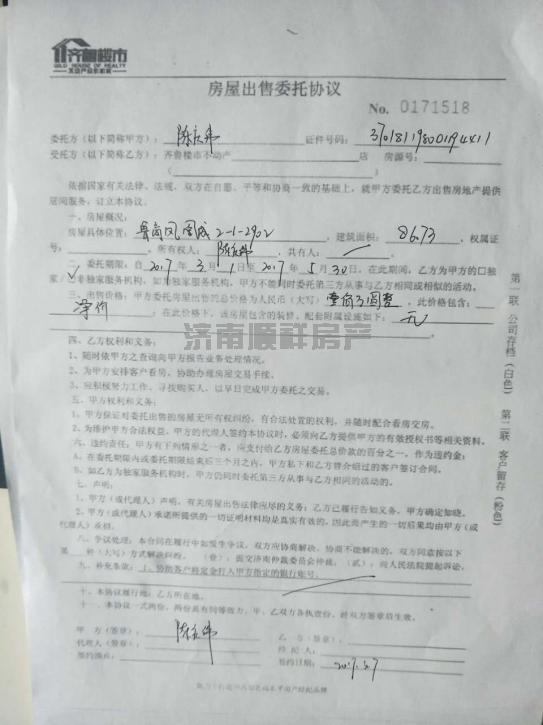 齐鲁楼市
GILD HOUSE OF REALTY
房屋出售委托协议
No. 0171518
委托方（以下简称甲方）： 证件号码：
受托方（以下简称乙方）：齐鲁楼市不动产 店 房源号：
依据国家有关法律、法规，双方在自愿、平等和协商一致的基础上，就甲方委托乙方出售房地产提供
居间服务，订立本协议。
一、房屋概况：
房屋具体位置： 2-1-2902 ，建筑面积： 86.73 ，权属证
号： ，所有权人： ，共有人：
二、委托期限：自2017年3月1日至2017年5月30日，在此期间，乙方为甲方的口独
家 非独家服务机构，如为独家服务机构，甲方不能同时委托第三方从事与乙方相同或相似的活动。
三、出售价格：甲方委托房屋出售的总价格为人民币（大写） ，此价格包含：
净价 ；在此价格下，该房屋包含的装修、配套附属设施如下： 无
济南顺祥房产
四、乙方权利和义务：
1、随时依甲方之查询向甲方报告业务处理情况。
2、为甲方安排客户看房，协助办理房屋交易手续。
3、应积极努力工作，寻找购买人，以早日完成甲方委托之交易。
五、甲方权利和义务：
1、甲方保证对委托出售的房屋无所有权纠纷，有合法处置的权利，并随时配合看房交房。
2、为维护甲方合法权益，甲方的代理人签约本协议时，必须向乙方提供甲方的有效授权书等相关资料。
六、违约责任：甲方有下列情形之一者，应支付给乙方房屋委托总价款的百分之一，作为违约金：
A、在委托期限内或委托期限结束后三个月之内，甲方私下和乙方曾介绍过的客户签订合同。
B、如乙方为独家服务机构时，甲方仍同时委托第三方从事与乙方相同的活动的。
七、声明：
1、甲方（或代理人）声明，有关房屋出售法律应尽的义务；乙方已履行告知义务，甲方确定知晓。
2、甲方（或代理人）承诺所提供的一切证明材料均是真实有效的，因此而产生的一切后果均由甲方（或
代理人）承担。
八、争议处理：本合同在履行中如发生争议，双方应协商解决，协商不能解决的，双方同意按以下
第 种（大写）方式解决纠纷。（壹），提交济南仲裁委员会仲裁，（贰），向人民法院提起诉讼。
九、补充条款：1、协助客户将定金打入甲方指定的银行账号。
十、本协议履行地：乙方所在地。
十一、本协议一式两份，两份具有同等效力，甲、乙双方各执壹份，经双方签章后生效。
甲 方（签章）： 乙 方（签章）：
代理人（签章）： 经 纪 人：
签约地点： 签约日期：
第一联 公司存档（白色） 第二联 客户留存（粉色）